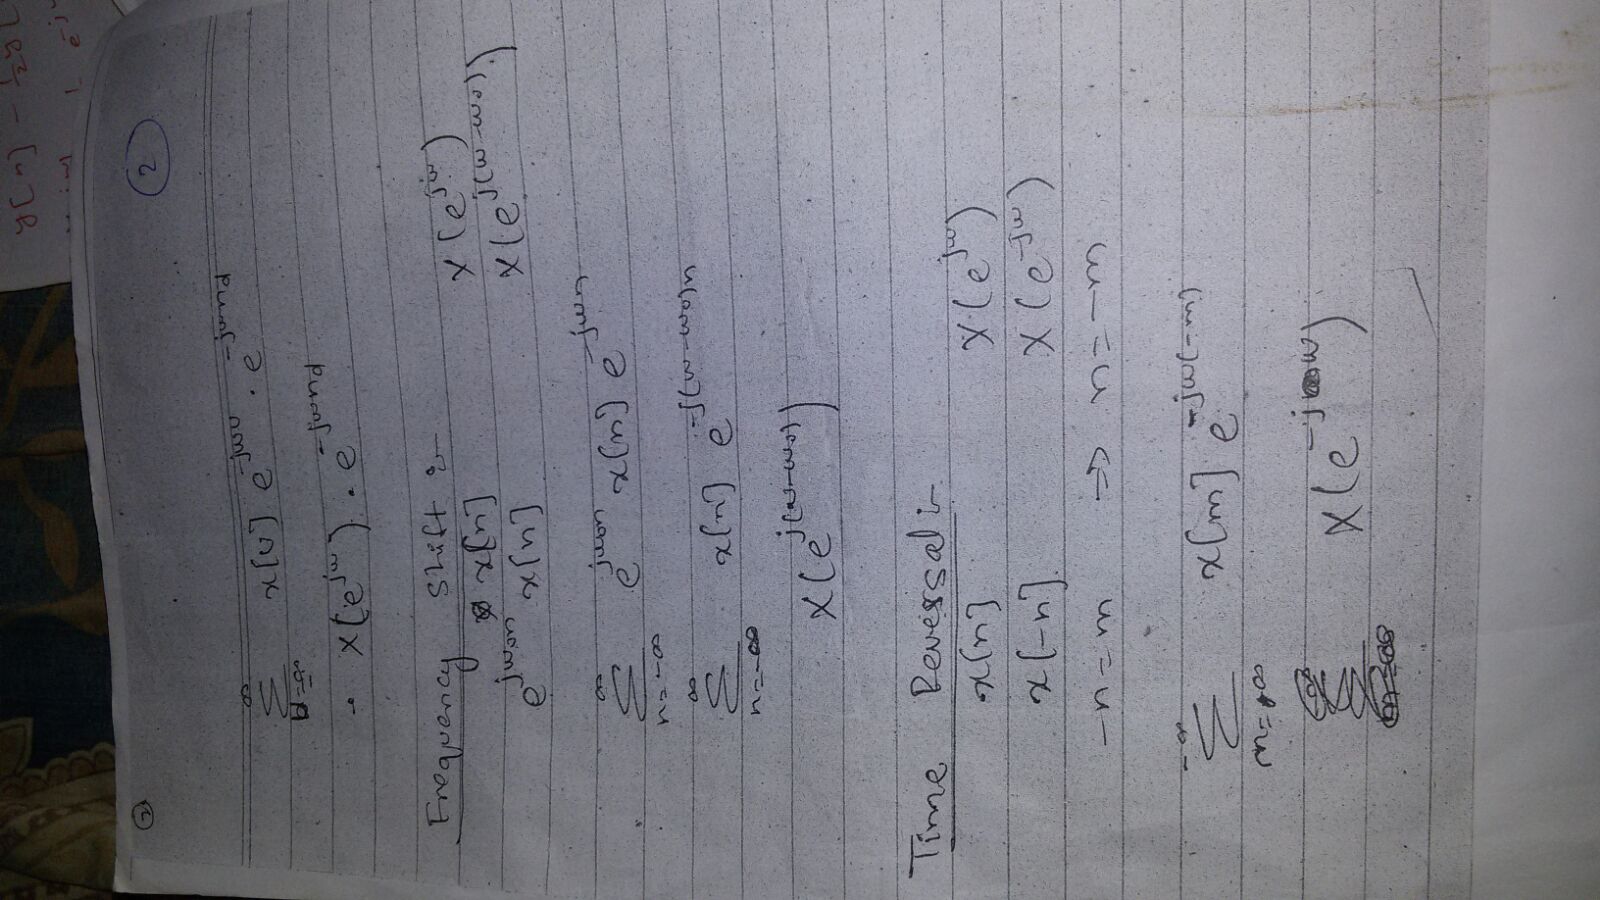 y[n] - 1/2 y[
②
2
∞ Σ x[u] e^{-jωu} · e^{-jωnd}
· X(e^{jω}) · e^{-jωnd}
Frequency Shift :-
x[n] X(e^{jω})
e^{jω0n} x[n] X(e^{j(ω-ω0)})
∞ Σ n=-∞ e^{jω0n} x[n] e^{-jωn}
∞ Σ n=-∞ x[n] e^{-j(ω-ω0)n}
X(e^{j(ω-ω0)})
Time Reversal :-
x[n] X(e^{jω})
x[-n] X(e^{-jω})
-n = m ⇒ n = -m
-∞ Σ m=+∞ x[m] e^{-jω(-m)}
X(e^{-jω})